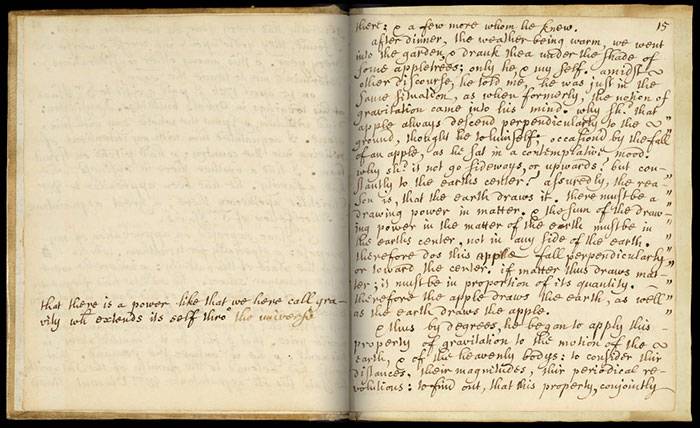 that there is a power like that we here call gra-
vity wh extends its self thro' the universe
15
there: & a few more whom he knew.
after dinner, the weather being warm, we went
into the garden, & drank thea under the shade of
some appletrees; only he, & my self. amidst
other discourse, he told me, he was just in the
same situation, as when formerly, the notion of
gravitation came into his mind. why sh.d that
apple always descend perpendicularly to the
ground, thought he to himself: occasion'd by the fall
of an apple, as he sat in a contemplative mood.
why sh.d it not go sideways, or upwards? but con-
stantly to the earths center? assuredly, the rea-
son is, that the earth draws it. there must be a
drawing power in matter. & the sum of the draw-
ing power in the matter of the earth must be in
the earths center, not in any side of the earth.
therefore dos this apple fall perpendicularly,
or toward the center. if matter thus draws mat-
ter; it must be in proportion of its quantity.
therefore the apple draws the earth, as well
as the earth draws the apple.
& thus by degrees, he began to apply this
property of gravitation to the motion of the
earth, & of the heavenly bodys: to consider thir
distances, their magnitudes, thir periodical re-
volutions: to find out, that this property, conjointly